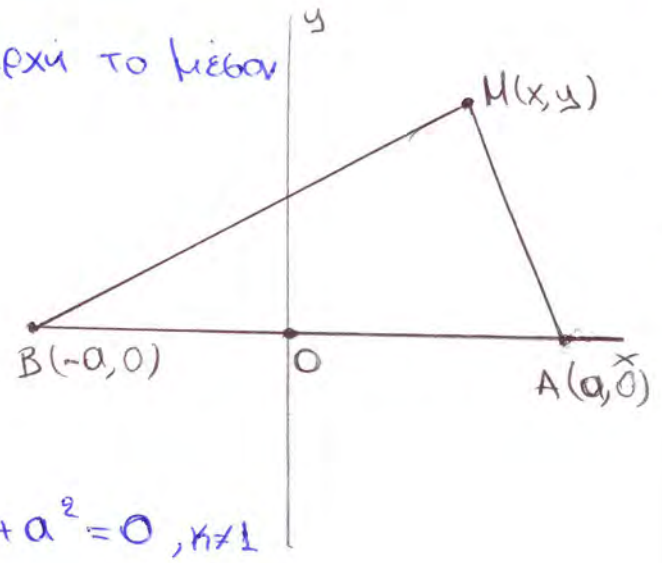 y
ρχή το μέσον
M(x,y)
B(-a,0)
O
x
A(a,0)
+a²=0, κ≠1